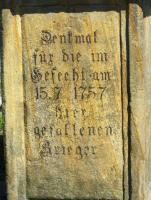 Denkmal
für die im
Gefecht am
15.7 1757
hier
gefallenen
Krieger